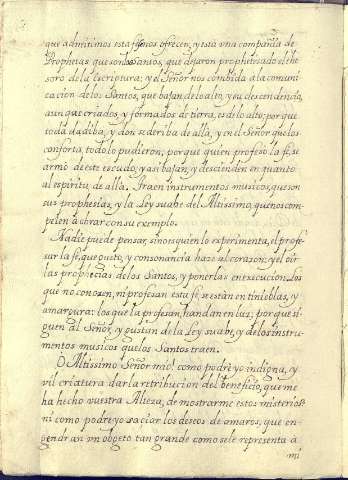 que admitimos esta fe, nos ofrecen, y esta una compañia de
Prophetas que son los Santos, que dejaron prophetizado el the
soro de la Escriptura; y el Señor nos combida a la comuni
cacion de los Santos, que bajan de lo alto, y su descendencia,
aunque criados, y formados de tierra, es de lo alto; porque
toda dadiba, y don se deriba de alla, y en el Señor que los
conforta, todo lo pudieron; porque quien profeso la fe, se
armò de este escudo; y asi bajan, y descienden in quanto
al espiritu, de alla. Traen instrumentos musicos, que son
sus prophesias, y la Ley suabe del Altissimo, que nos com
pelen a obrar con su exemplo.
Nadie puede pensar, sino es quien lo experimenta, el profe
sar la fe, que gusto, y consonancia hace al corazon; y el oir
las prophecias de los Santos, y ponerlas en execucion. Los
que no conocen, ni profesan esta fe, se estan en tinieblas, y
amargura: los que la profesan, handan en luz; porque si
guen al Señor, y gustan de la Ley suabe, y de los instru
mentos musicos que los Santos traen.
O Altissimo Señor mio! como podrè yo indigna, y
vil criatura dar la retribucion del beneficio, que me
ha hecho vuestra Alteza, de mostrarme estos misterios?
ni como podre yo saciar los deseos de amaros, que en
gendran un obgeto tan grande como se le representa à
mi